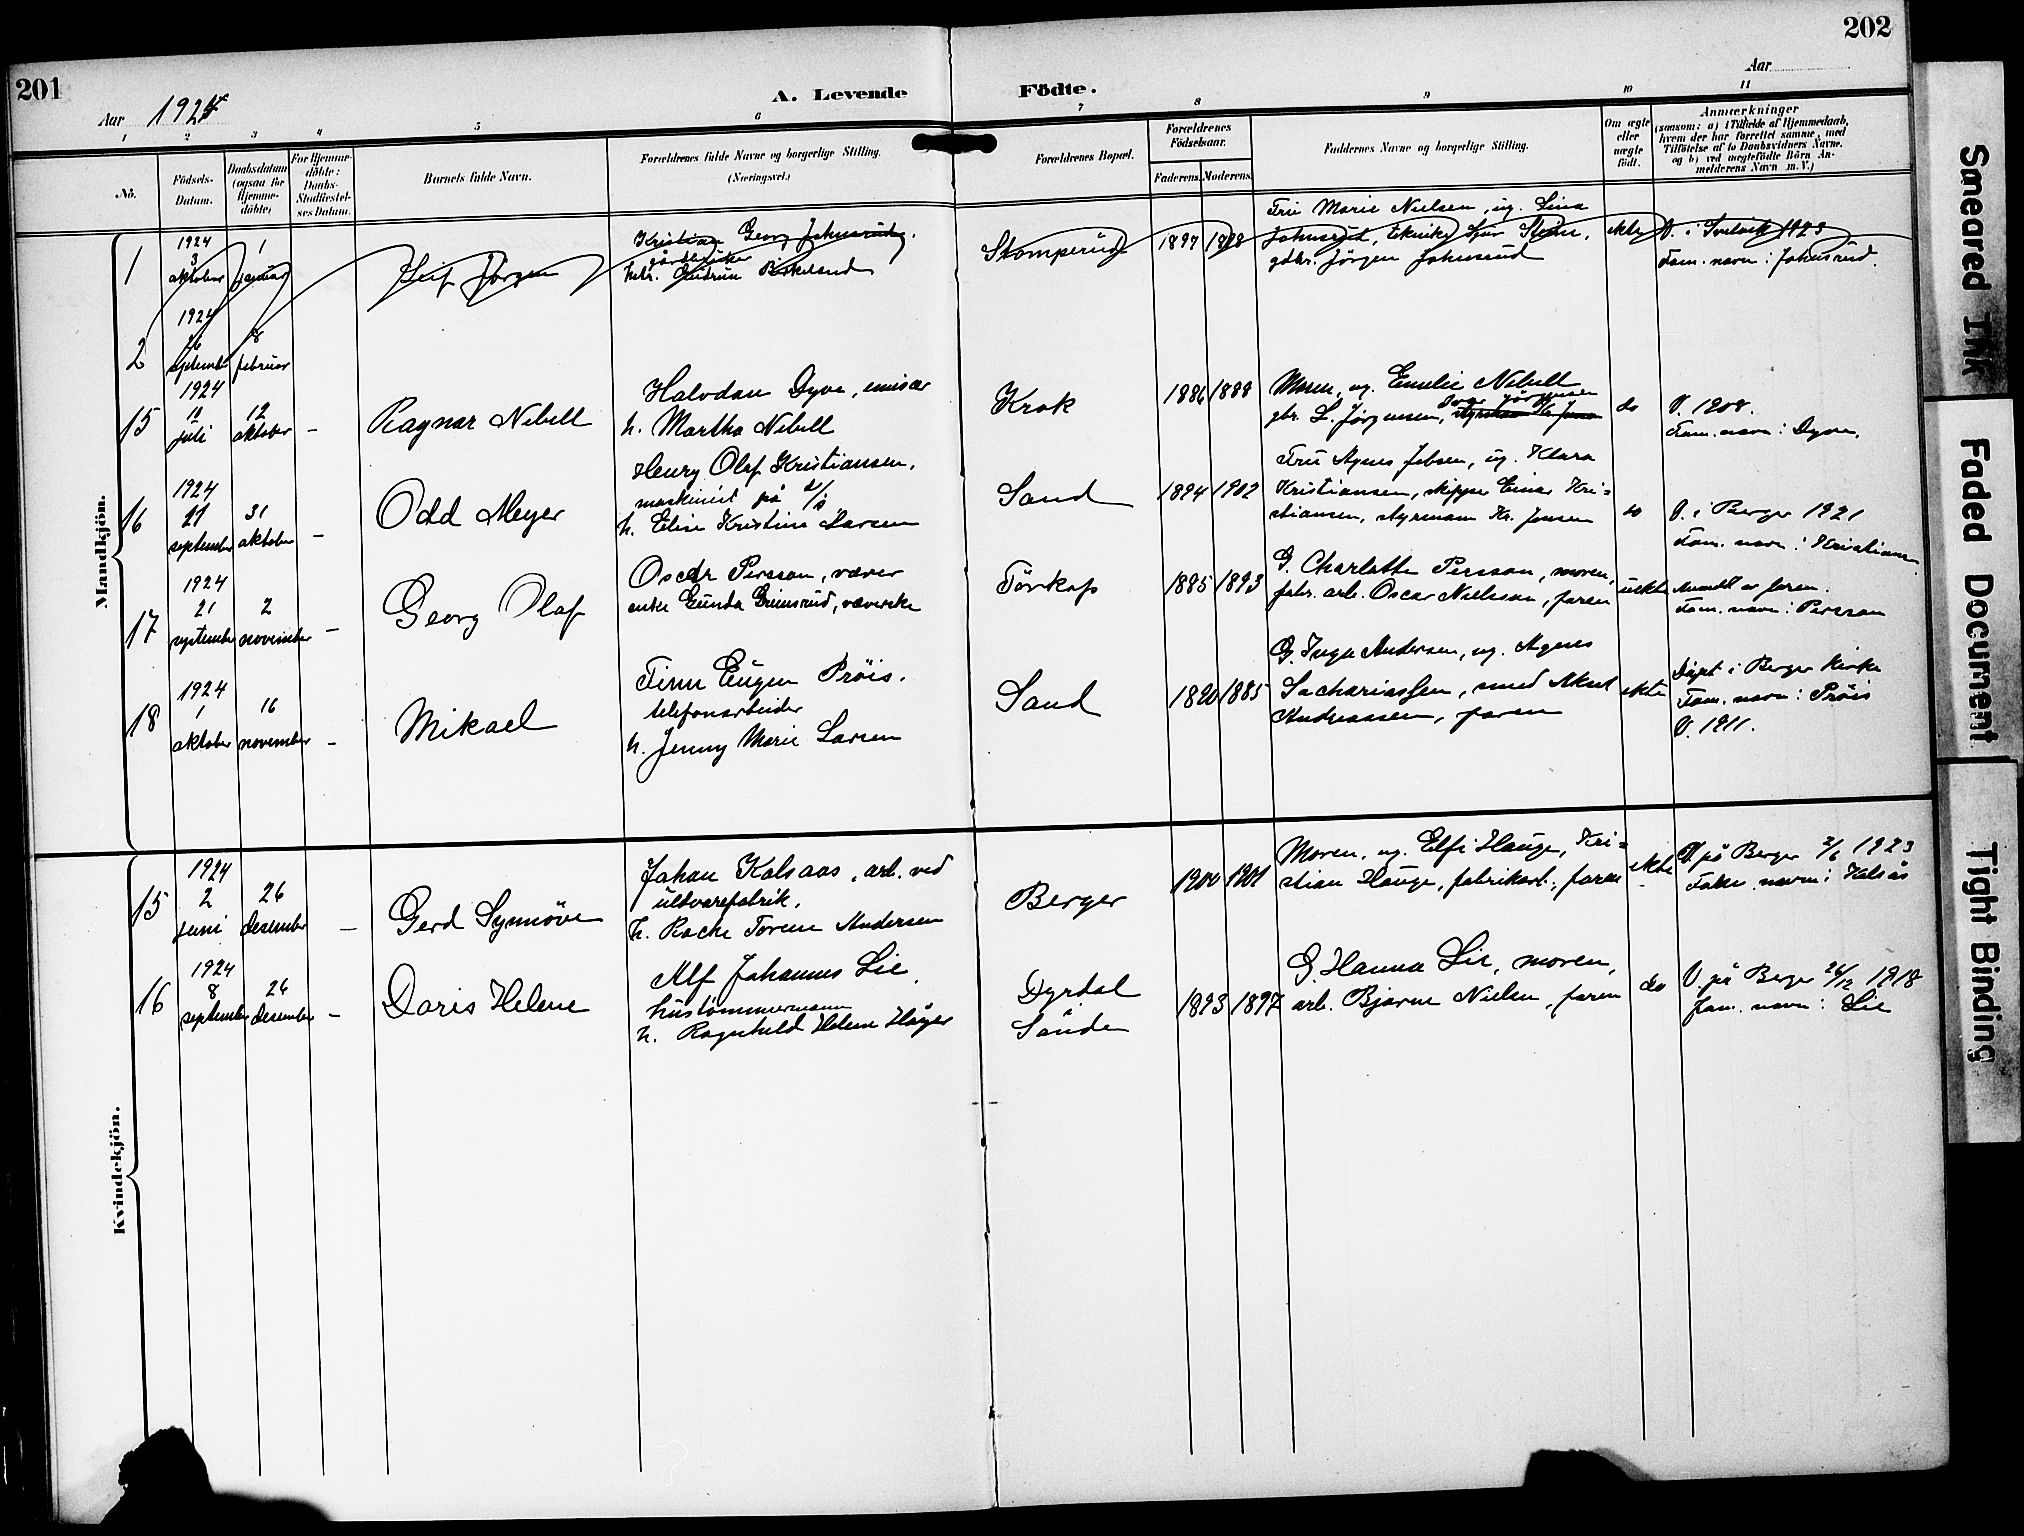 201
202
Aar 1924
A. Levende Födte.
Aar
1 2 3 4 5 6 7 8 9 10 11
No.
Födsels-
Datum.
Daabsdatum
(ogsaa for
Hjemme-
döbte)
For Hjemme-
döbte:
Daabs-
Stadfæstel-
ses Datum.
Barnets fulde Navn.
Forældrenes fulde Navne og borgerlige Stilling.
(Næringsvei.)
Forældrenes Bopæl.
Forældrenes
Födselsaar.
Faderens. Moderens.
Faddernes Navne og borgerlige Stilling.
Om ægte
eller
uægte
födt.
Anmærkninger
(saasom: a) i Tilfælde af Hjemmedaab,
hvem der har forrettet samme, med
Tilföielse af to Daabsvidners Navne,
og b) ved uægtefödte Börn An-
melderens Navn m. V.)
Mandkjön.
1
1924
3
oktober
1
januar
Leif Jørgen
Kristian Georg Johnsrud,
h. Gudrun Birkeland
Stomperud
1897
Fru Marie Nielsen, ug. Lina
Johnsrud, tekniker
gdbr. Jörgen Johnsrud
ekte
V. i Svelvik 1923
Fam. navn: Johnsrud.
2
1924
september
8
februar
15
1924
10
juli
12
oktober
-
Ragnar Nebell
Halvdan Dyve, emisær
h. Martha Nebell
Krok
1886 1888
Moren, ug. Emelie Nebell
gbr. L. Jørgensen,
do
V. 1908.
Fam. navn: Dyve.
16
1924
21
september
31
oktober
-
Odd Meyer
Henry Olaf Kristiansen,
maskinist på d/s
h. Elise Kristine Larsen
Sand
1894 1902
Fru Agnes Jebsen, ug. Klara
Kristiansen, skipper Einar Kri=
stiansen, styrmann Kr. Jensen
do
V. i Berger 1921
Fam. navn: Kristiansen
17
1924
21
september
2
november
-
Georg Olaf
Oscar Persson, væver
enke Gunda Grimsrud, væverske
Törkop
1885 1893
G. Charlotte Persson, moren,
fabr. arb. Oscar Nielsson, faren
uekte
Anmeldt av faren.
Fam. navn: Persson
18
1924
1
oktober
16
november
-
Mikael
Finn Eugen Pröis,
telefonarbeider
h. Jenny Marie Larsen
Sand
1880 1885
G. Inga Andersen, ug. Agnes
Sachariassen, smed Aksel
Andreassen, faren
ekte
Døpt i Berger kirke
Fam. navn: Pröis
V. 1911.
Kvindekjön.
15
1924
2
juni
26
desember
-
Gerd Synnöve
Johan Kolsaas, arb. ved
uldvarefabrik.
h. Rache Torene Andersen
Berger
1900 1901
Moren, ug. Elfi Hauge, Kri=
stian Hauge, fabrikarb., faren
ekte
V. på Berger 2/6 1923
navn: Kolsås
16
1924
8
september
26
desember
-
Doris Helene
Alf Johannes Lie,
hustömmermann
h. Ragnhild Helene Höyer
Dyrdal
Sande
1893 1897
G. Hanna Lie, moren,
arb. Bjarne Nielsen, faren
do
V. på Berger 26/12 1918
Fam. navn: Lie
Smeared Ink
Faded Document
Tight Binding